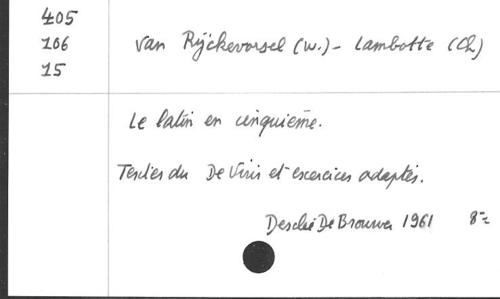 405
106 van Rijckevorsel (W.) - Lambotte (Ch)
15
Le latin en cinquième.
Textes du De Viris et exercices adaptés.
Desclée De Brouwer 1961 8=